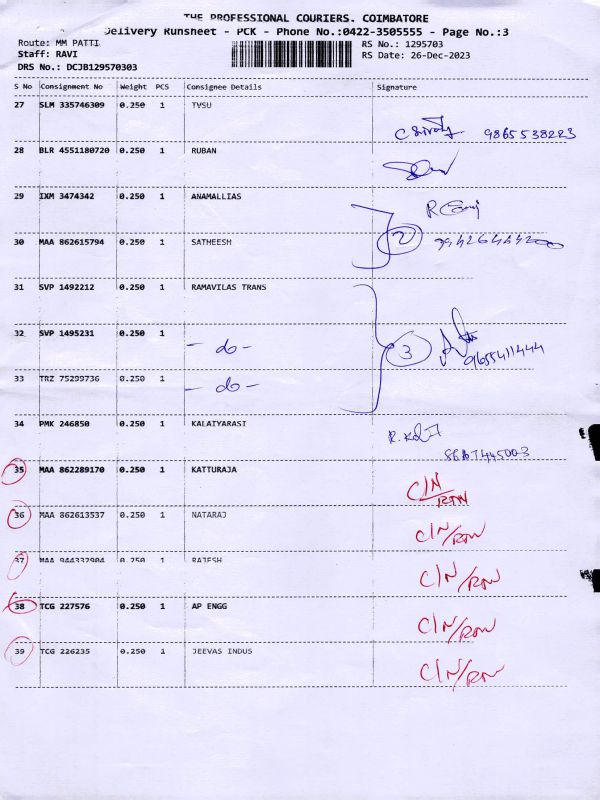 THE PROFESSIONAL COURIERS. COIMBATORE
Delivery Runsheet - PCK - Phone No.:0422-3505555 - Page No.:3
Route: MM PATTI
RS No.: 1295703
Staff: RAVI
RS Date: 26-Dec-2023
DRS No.: DCJB129570303
S No Consignment No Weight PCS Consignee Details Signature
27 SLM 335746309 0.250 1 TVSU
9865538223
28 BLR 4551180720 0.250 1 RUBAN
29 IXM 3474342 0.250 1 ANAMALLIAS
2
30 MAA 862615794 0.250 1 SATHEESH
31 SVP 1492212 0.250 1 RAMAVILAS TRANS
32 SVP 1495231 0.250 1 - do -
3 9655411444
33 TRZ 75299736 0.250 1 - do -
34 PMK 246850 0.250 1 KALAIYARASI
35 MAA 862289170 0.250 1 KATTURAJA C/N/RTN
36 MAA 862613537 0.250 1 NATARAJ C/N/RTN
37 MAA 944332904 0.250 1 RAJESH C/N/RTN
38 TCG 227576 0.250 1 AP ENGG C/N/RTN
39 TCG 226235 0.250 1 JEEVAS INDUS C/N/RTN